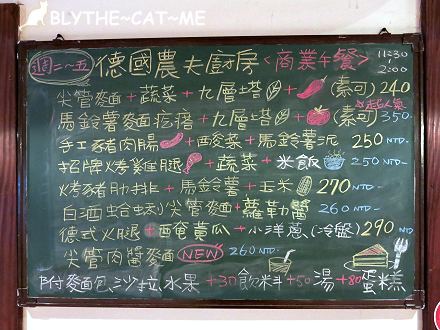 BLYTHE~CAT~ME
週二~五 德國農夫廚房<商業午餐> 11:30~2:00
尖管麵+蔬菜+九層塔+(素可)240
超人氣
馬鈴薯麵疙瘩+九層塔+(素可)350.
手工豬肉腸+酸菜+馬鈴薯泥 250 NTD-
招牌烤雞腿+蔬菜+米飯 250 NTD-
烤豬肋排+馬鈴薯+玉米 270 NTD-
白酒蛤蜊尖管麵+蘿勒醬 260 NTD-
德式火腿+酸黃瓜+小洋蔥(冷盤)290 NTD
尖管肉醬麵 NEW 260 NTD-
附麵包.沙拉.水果 +30飲料+50湯+80蛋糕